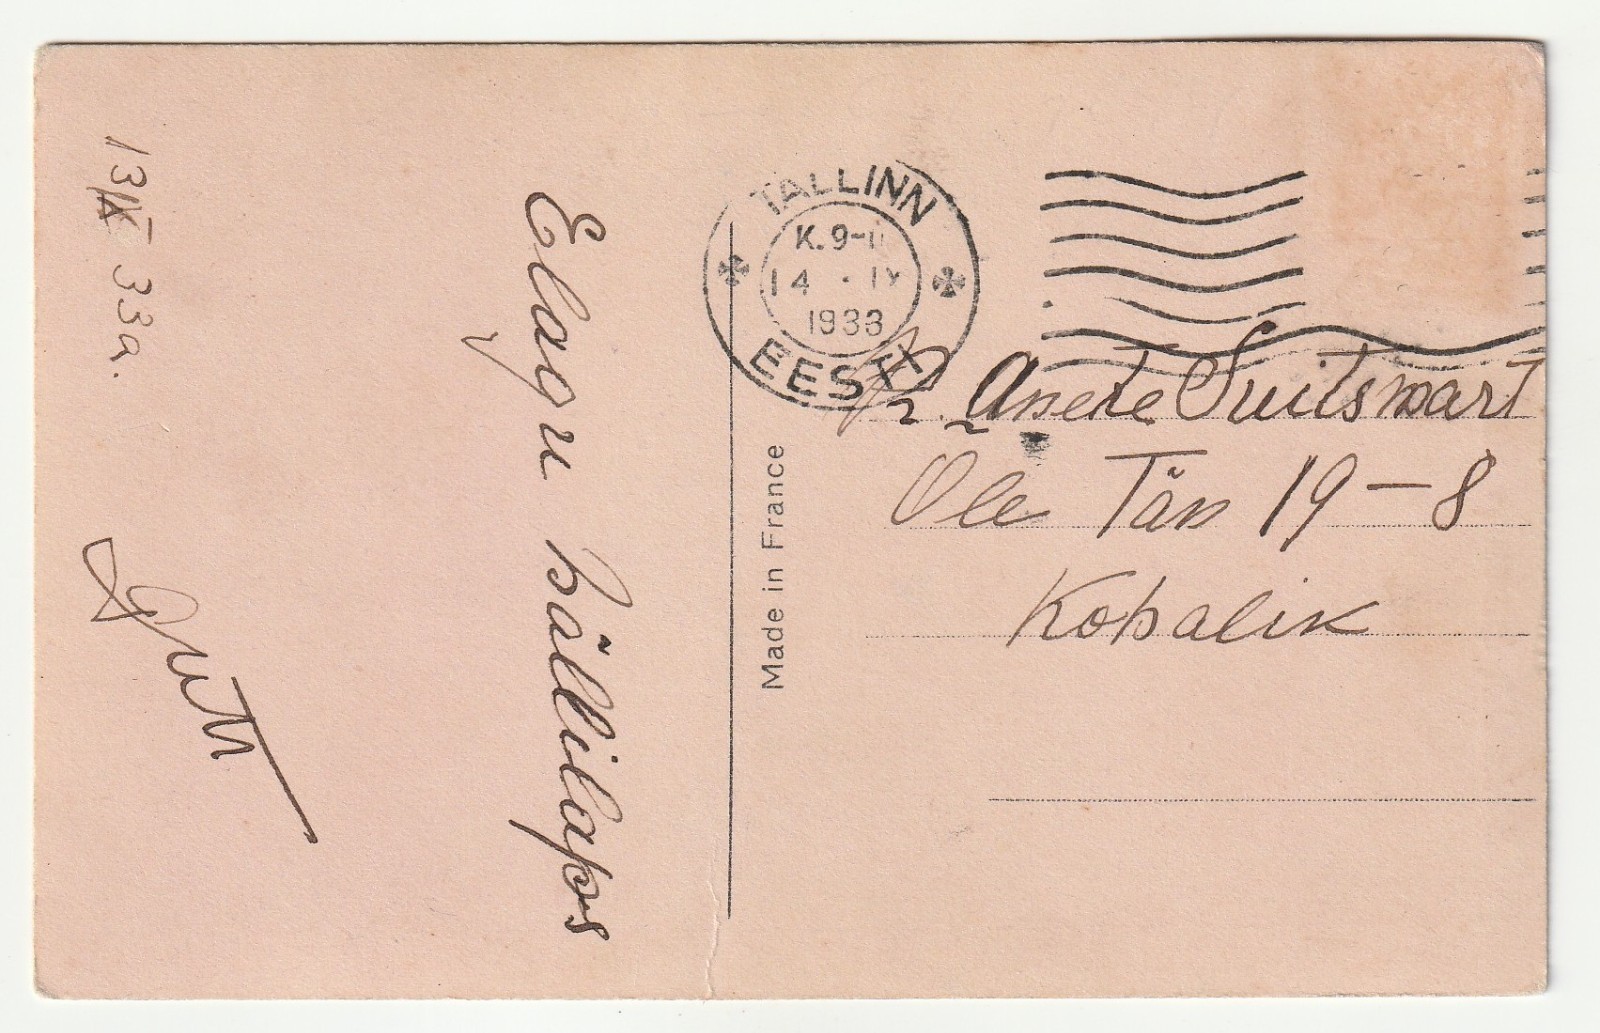 13/IX 33a.
Elagu hällilaps
TALLINN
K. 9-11
14 . IX
1933
EESTI
Made in France
Pr. Anete Suitsmart
Õle Tän 19-8
Kohalik